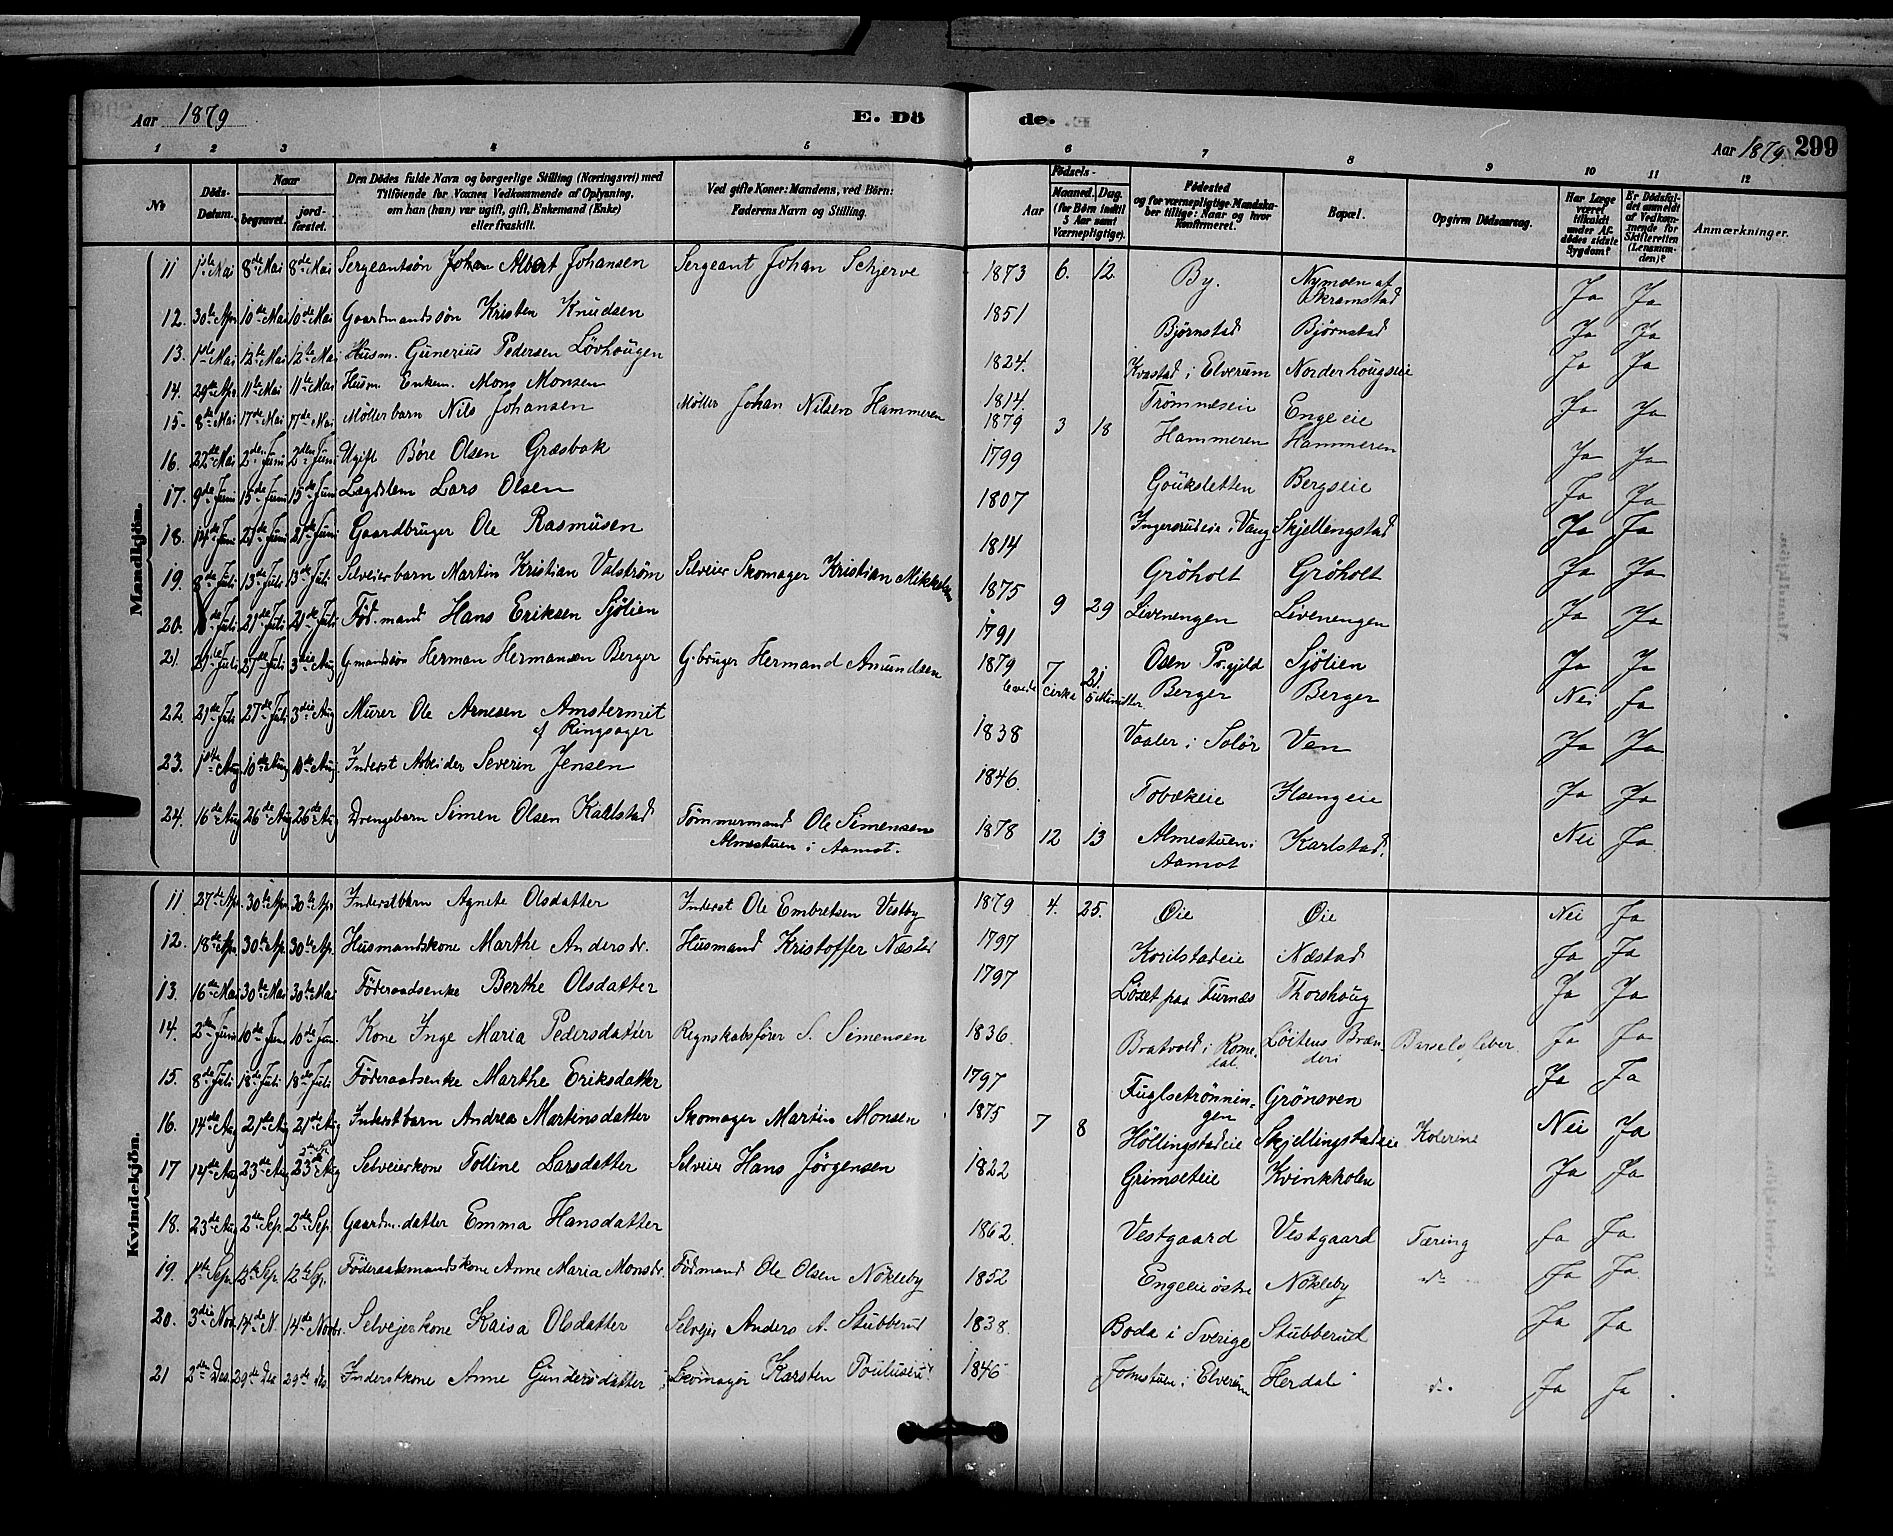 Aar 1879
E. Dö
de.
Aar 1879. 299
1 2 3 4 5 6 7 8 9 10 11 12
No
Döds-Datum.
Naar
begravet.
jord-fæstet.
Den Dödes fulde Navn og borgerlige Stilling (Næringsvei) med
Tilföiende for Voxnes Vedkommende af Oplysning,
om han (hun) var ugift, gift, Enkemand (Enke)
eller fraskilt.
Ved gifte Koner: Mandens, ved Börn:
Faderens Navn og Stilling.
Födsels-
Aar
Maaned. Dag.
(for Börn indtil
5 Aar samt
Værnepligtige).
Födested
og for værnepligtige Mandska-
ber tillige: Naar og hvor
Konfirmeret.
Bopæl.
Opgiven Dödsaarsag.
Har Læge
været
tilkaldt
under Af-
dödes sidste
Sygdom?
Er Dödsfal-
det anmeldt
af Vedkom-
mende for
Skifteretten
(Lensman-
den)?
Anmærkninger.
Mandkjön.
11 1ste Mai 8de Mai 8de Mai Sergeantsön Johan Albert Johansen Sergeant Johan Schjerve 1873 6. 12. By. Nymoen af Skramstad Ja Ja
12. 30te Apr 10de Mai 10de Mai Gaardmandssön Kristen Knudsen 1851 Björnstad Björnstad Ja Ja
13. 1ste Mai 12te Mai 12te Mai Husm. Gunerius Pedersen Lövhougen 1824. Kvastad i Elverum Norderhougseie Ja Ja
14. 29de Apr 11te Mai 11te Mai Husm Enkem. Mons Monsen 1814. Trömnæseie Engeeie Ja Ja
15. 8de Mai 17de Mai 17de Mai Möllerbarn Nils Johansen Möller Johan Nilsen Hammeren 1879 3 18 Hammeren Hammeren
16. 22de Mai 2den Juni 2den Juni Ugift Böre Olsen Græsbak 1799 Goukslætten Bergseie Ja Ja
17. 9de Juni 15de Juni 15de Juni Lægdslem Lars Olsen 1807 Ingersrudeie i Vang Skjellengstad Ja Ja
18. 14de Juni 21de Juni 21de Juni Gaardbruger Ole Rasmusen 1814 Gröholt Gröholt Ja Ja
19. 8de Juli 13de Juli 13de Juli Selveierbarn Martin Kristian Valström Selveier Skomager Kristian Mikkelsen 1875 9 29 Livenengen Livenengen Ja Ja
20. Juli 21de Juli 21de Juli Föd.mand Hans Eriksen Sjölien 1791 Osen Pr.gjeld Sjölien Ja Ja
21. 21de Juli 27de Juli 3die Aug Gmandssön Herman Hermansen Berger G.bruger Hermand Amundsen 1879 7 21. levede cirka 5 Minutter. Berger Berger Nei Ja
22. 21de Juli 27de Juli 3die Aug Murer Ole Arnesen Amstermit
af Ringsager 1838 Vaaler i Solör Ven Ja Ja
23. 1ste Aug 10de Aug 10de Aug Inderst Arbeider Severin Jensen 1846. Tobækeie Hsengeie Ja Ja
24. 16de Aug 26de Aug 26de Aug Drengebarn Simen Olsen Kallstad Tömmermand Ole Simensen
Almestuen i Aamot. 1878 12 13 Almestuen i
Aamot Karlstad. Nei Ja
Kvindekjön.
11. 27de Apr. 30te Apr 30te Apr Inderstbarn Agnete Olsdatter Inderst Ole Embretsen Vestby 1879 4. 25. Øie Øie Nei Ja
12. 18de Apr. 30te Apr. 30te Apr. Husmandskone Marthe Andersdr. Husmand Kristoffer Næstad 1797 Korilstadeie Næstad Ja Ja
13. 16de Mai 30te Mai 30te Mai Föderaadsenke Berthe Olsdatter 1797 Löset paa Furnæs Thorshoug Ja Ja
14. 2den Juni 10de Juni 10de Juni. Kone Inge Maria Pedersdatter Regnskabsförer S. Simensen 1836. Bratvold i Rome-
dal. Löitens Bræn-
deri Barselsfeber. Ja Ja
15. 8de Juli 18de Juli 18de Juli Föderaadsenke Marthe Eriksdatter 1797 Fuglsetrönnin-
gen Grönsven Ja Ja
16. 14de Aug 21de Aug 21de Aug Inderstbarn Andrea Martinsdatter Skomager Martin Monsen 1875 7 8 Höllingstadeie Skjellingstadeie Kolerine Nei Ja
17 14de Aug 23de Aug 23de Aug Selveierkone Tolline Larsdatter Selveier Hans Jörgensen 1822 Grimseteie Kvinkholen Ja Ja
18. 23de Aug 2de Sep. 2de Sep. Gaardm.datter Emma Hansdatter 1862. Vestgaard Vestgaard Tæring Ja Ja
19. 1ste Sep. 12te Sep. 12te Sep. Föderaadsmandskone Anne Maria Monsdr. Födmand Ole Olsen Nökleby 1852 Engeleie östre Nökleby do Ja Ja.
20. 3die Nov. 14de N. 14de Novbr. Selvejerkone Kaisa Olsdatter Selvejer Anders A. Stubberud 1838. Boda i Sverige Stubberud Ja Ja
21 2den Des. 29de Des 29de Des. Inderstkone Anne Gundersdatter Skomager Karsten Poulusen 1846 JoMstuen i Elverum Herdal do. Ja Ja